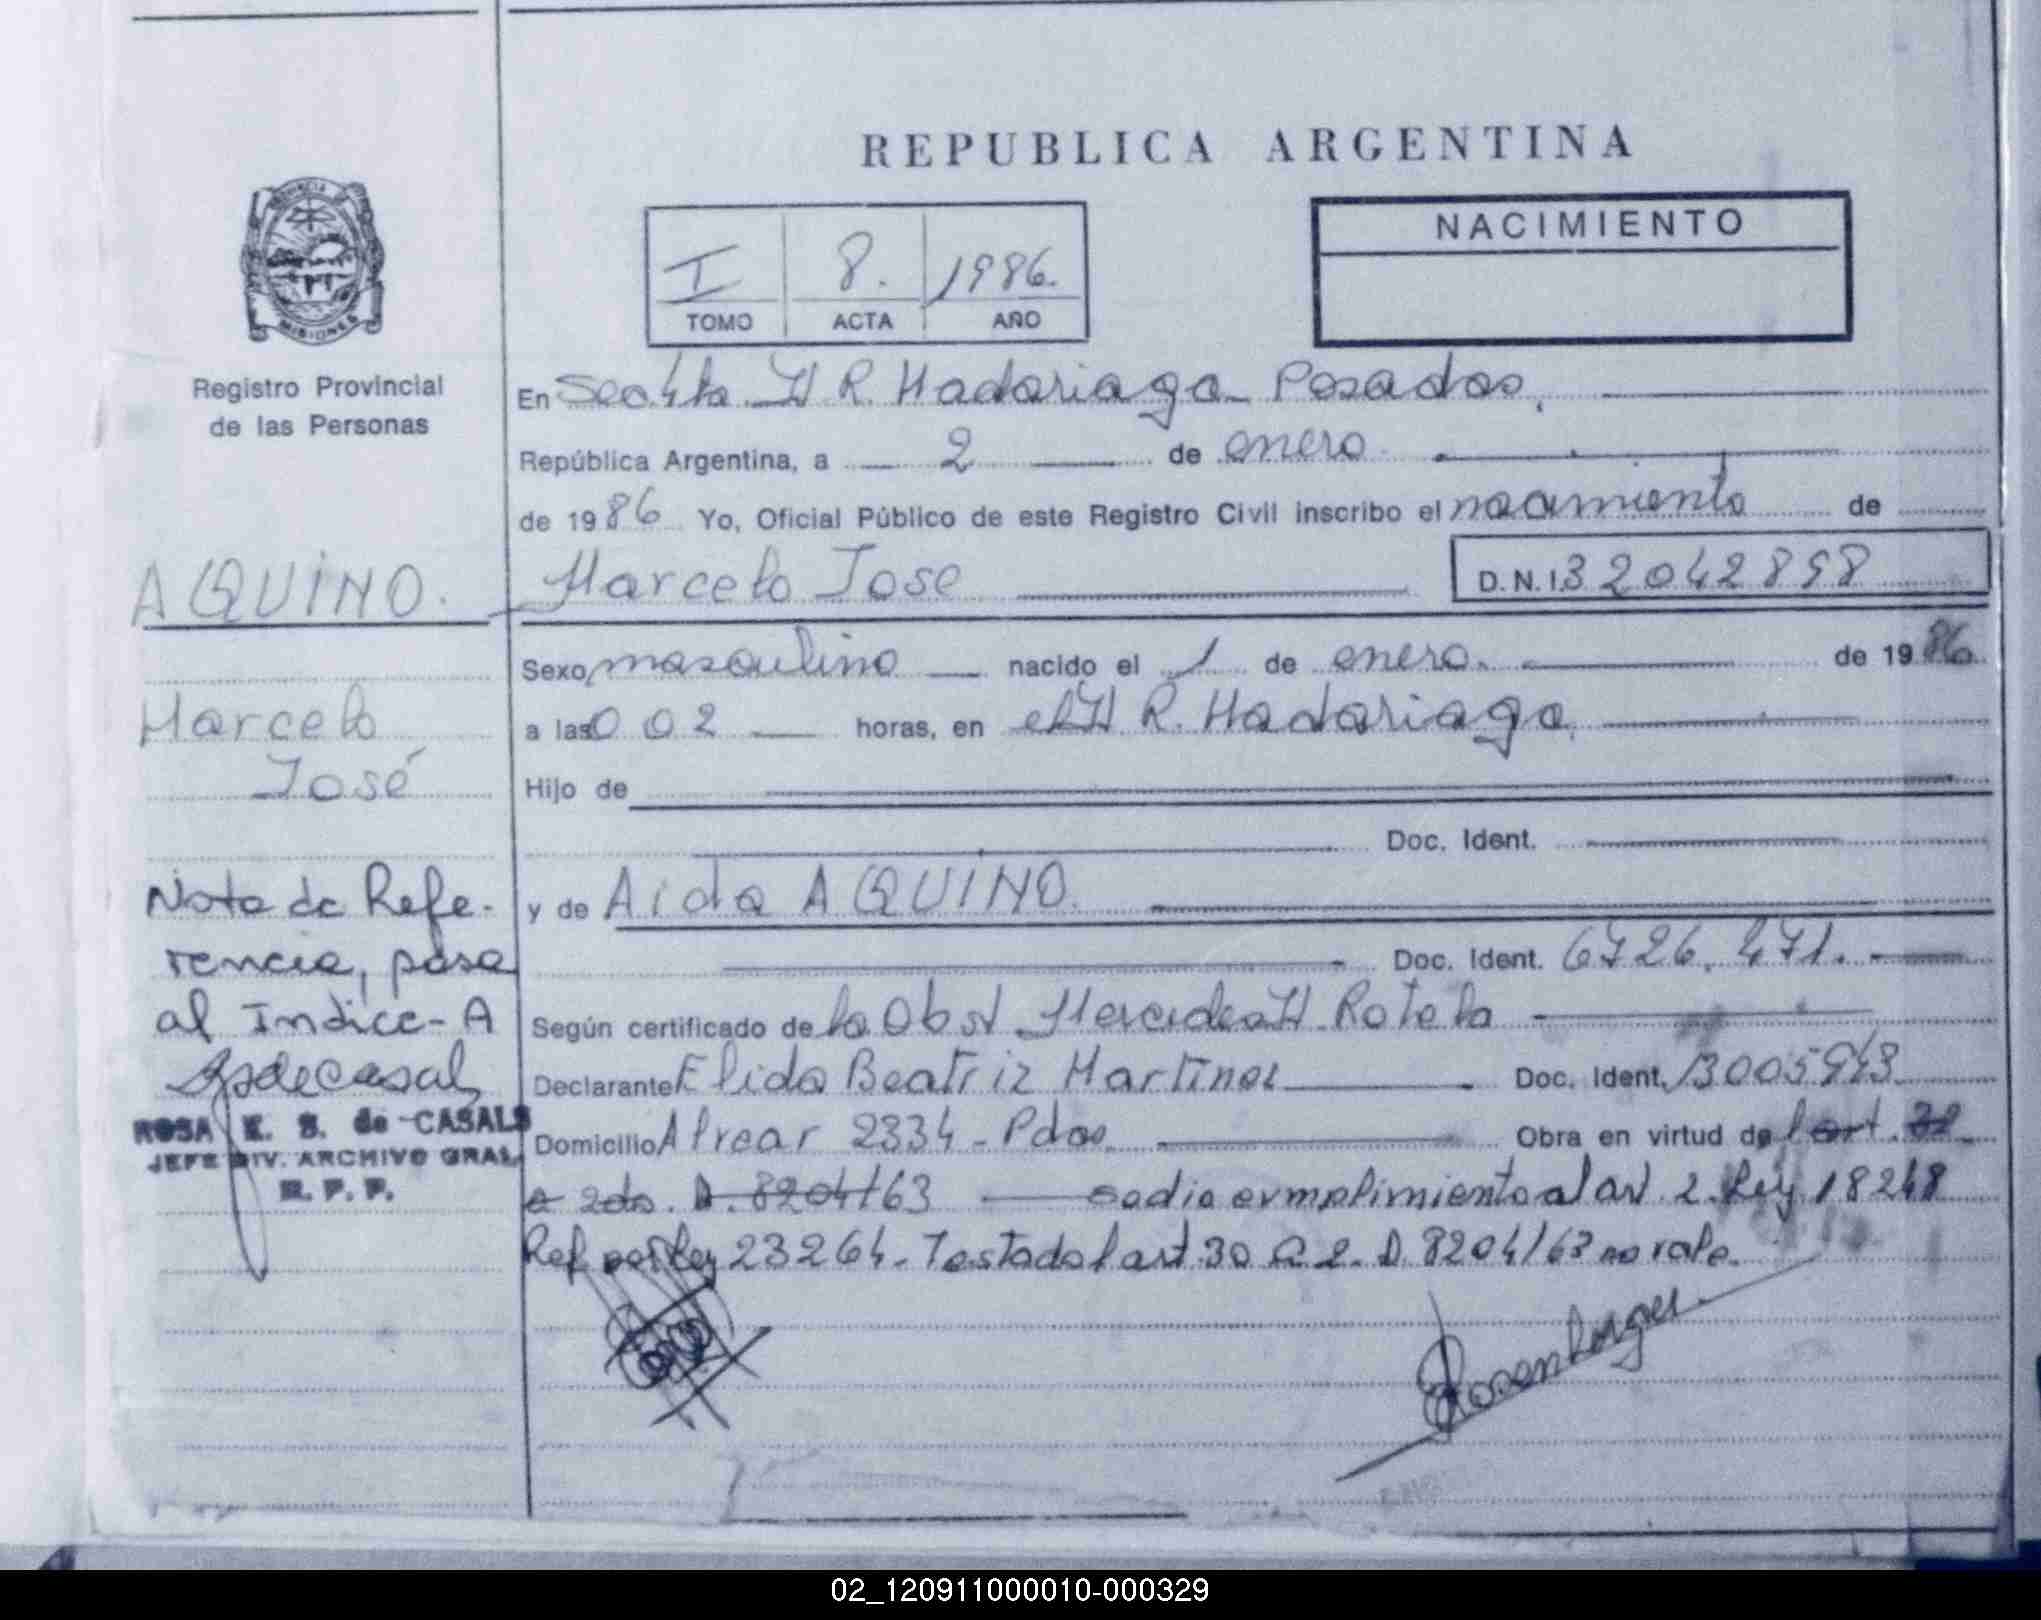 REPUBLICA ARGENTINA
PROVINCIA
MISIONES
Registro Provincial
de las Personas
I 8. 1986.
TOMO ACTA AÑO
NACIMIENTO
En Secc 4ta. H R. Madariaga Posadas,
República Argentina, a 2 de enero
de 1986 Yo, Oficial Público de este Registro Civil inscribo el nacimiento de
AQUINO. Marcelo Jose D.N.I. 32042898
Sexo masculino nacido el 1 de enero. de 1986
Marcelo
José
a las 0 02 horas, en el H R. Madariaga,
Hijo de
Doc. Ident.
y de Aida AQUINO.
Doc. Ident. 6726.471.
Nota de Refe-
rencia, pasa
al Indice-A
ROSA E. S. de CASALS
JEFE DIV. ARCHIVO GRAL.
R. P. P.
Según certificado de la Obst Mercedes H. Rotela
Declarante Elida Beatriz Martinez Doc. Ident. 13005943
Domicilio Alvear 2334 - Pdas Obra en virtud de l art. 30
a 2do. D. 8204/63 se dio cumplimiento al art 2. Ley 18248
Ref por Ley 23264. Testado l art 30 a 2. D. 8204/63 no vale.
02_120911000010-000329